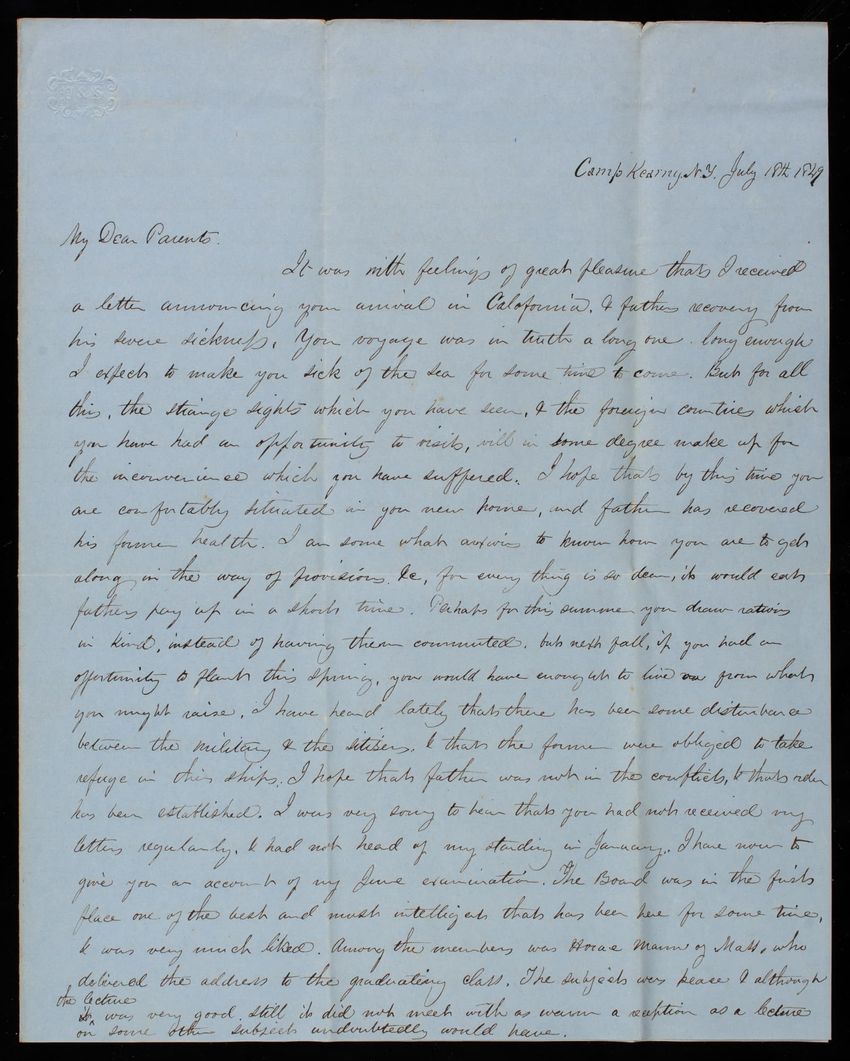 Camp Kearny N.Y. July 18th 1849
My Dear Parents.
It was with feelings of great pleasure that I received
a letter announcing your arrival in Calafornia, & fathers recovery from
his severe sickness, Your voyage was in truth a long one. long enough
I expect to make you sick of the sea for some time to come. But for all
this, the strange sights which you have seen, & the foreign countries which
you have had an opportunity to visit, will in some degree make up for
the inconvenience which you have suffered. I hope that by this time you
are comfortably situated in you new home, and father has recovered
his former health. I am some what anxious to know how you are to get
along in the way of provisions, &c, for every thing is so dear, it would eat
fathers pay up in a short time. Perhaps for this summer you draw rations
in kind, instead of having them commuted, but next fall, if you had an
opportunity to plant this spring, you would have enough to live on from what
you might raise. I have heard lately that there has been some disturbance
between the military & the sitisens, & that the former were obliged to take
refuge in their ships. I hope that father was not in the conflict, & that order
has been established. I was very sorry to hear that you had not received my
letters regularly, & had not heard of my standing in January. I have now to
give you an account of my June examination. The Board was in the first
place one of the best and most intelligent that has been here for some time,
& was very much liked. Among the members was Horace Mann of Mass, who
delivered the address to the graduating class. The subject was peace & although
the lecture
was very good. still it did not meet with as warm a reception as a lecture
on some other subject undoubtedly would have.